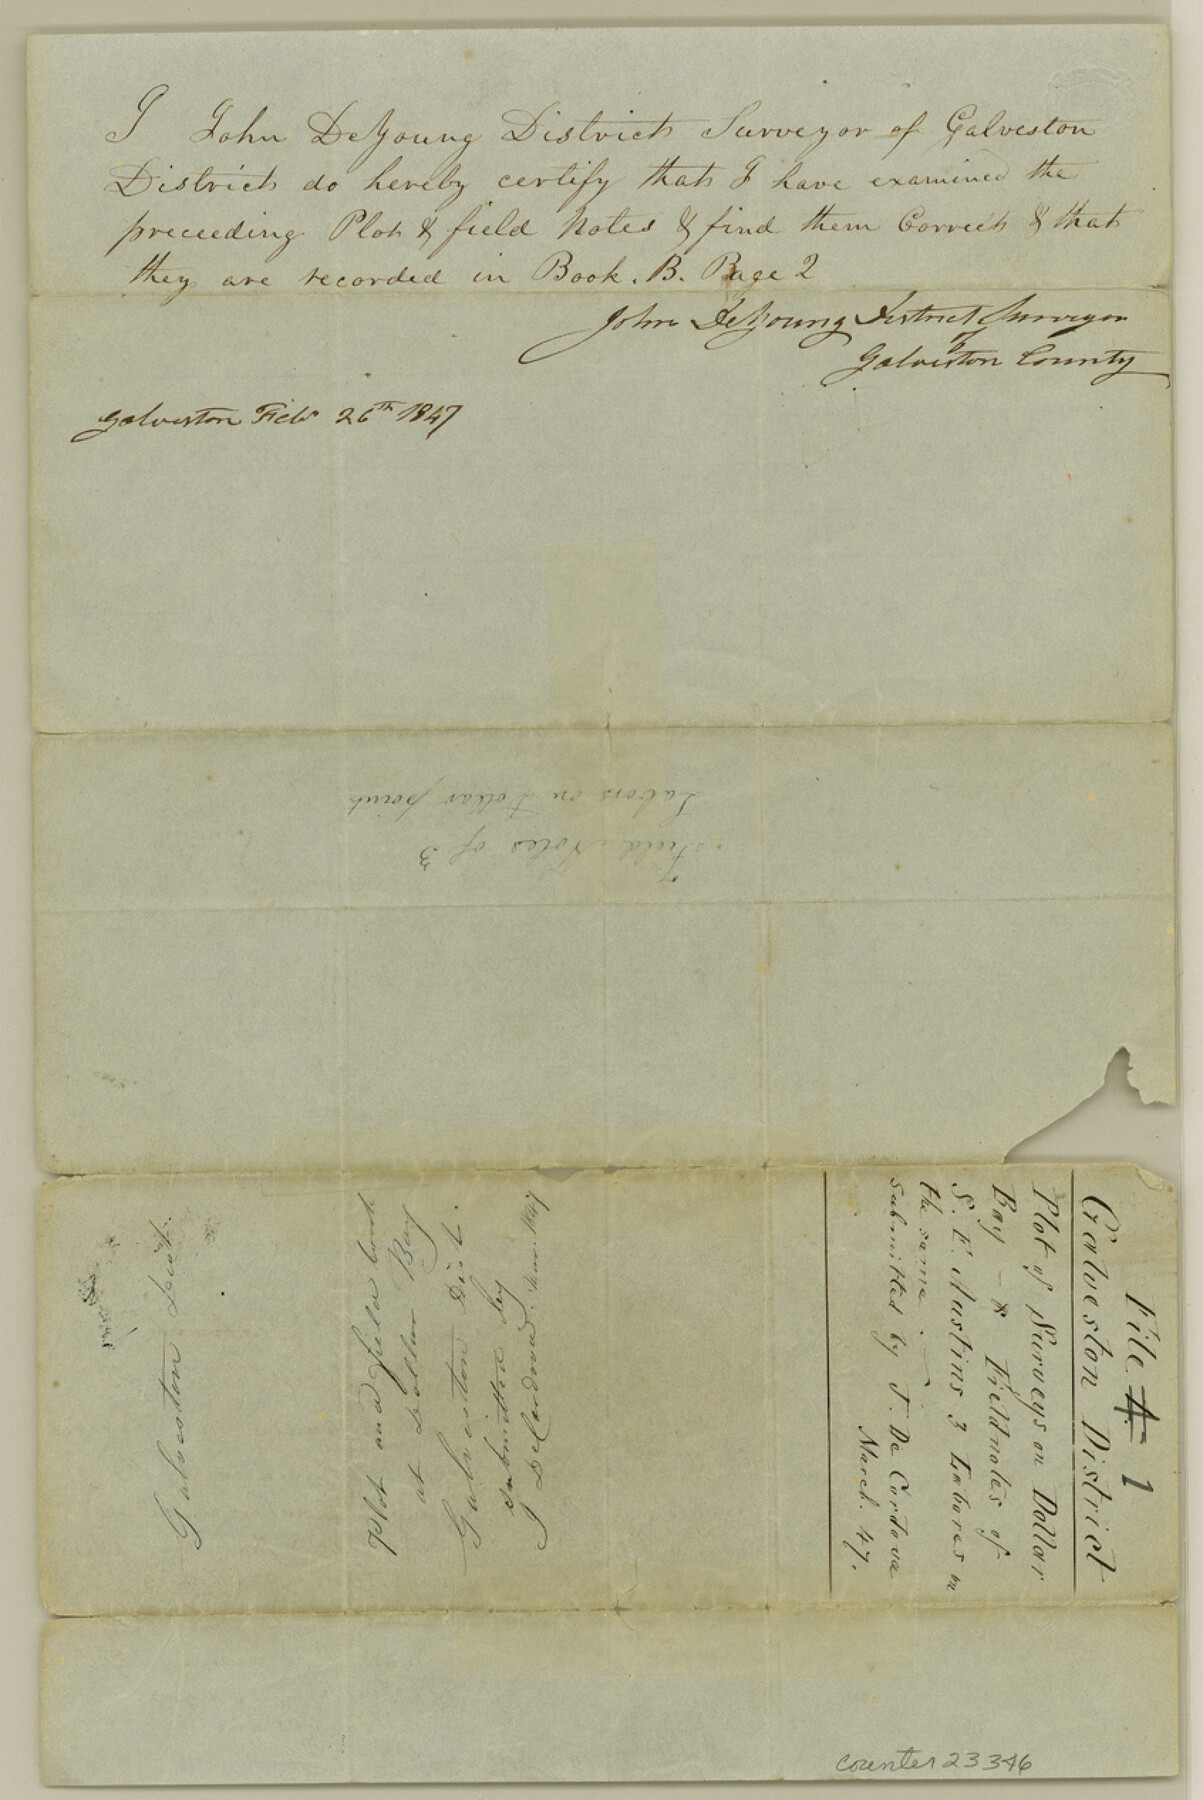 I John DeYoung District Surveyor of Galveston
District do hereby certify that I have examined the
preceeding Plot & field Notes & find them Correct & that
they are recorded in Book. B. Page 2
John DeYoung District Surveyor
of
Galveston County
Galveston Feb 26th 1847
Field Notes of 3
Labors on Dollar point
File A 1
Galveston District
Plot of Surveys on Dollar
Bay — & Fieldnotes of
S. E. Austins 3 Labores on
the same.
submitted by J. De Cordova
March. 47.
Plot and field book
at Dollar Bay
Galveston Dist.
submitted by
J DeCordova. 1847
Galveston Dist.
counter 23346